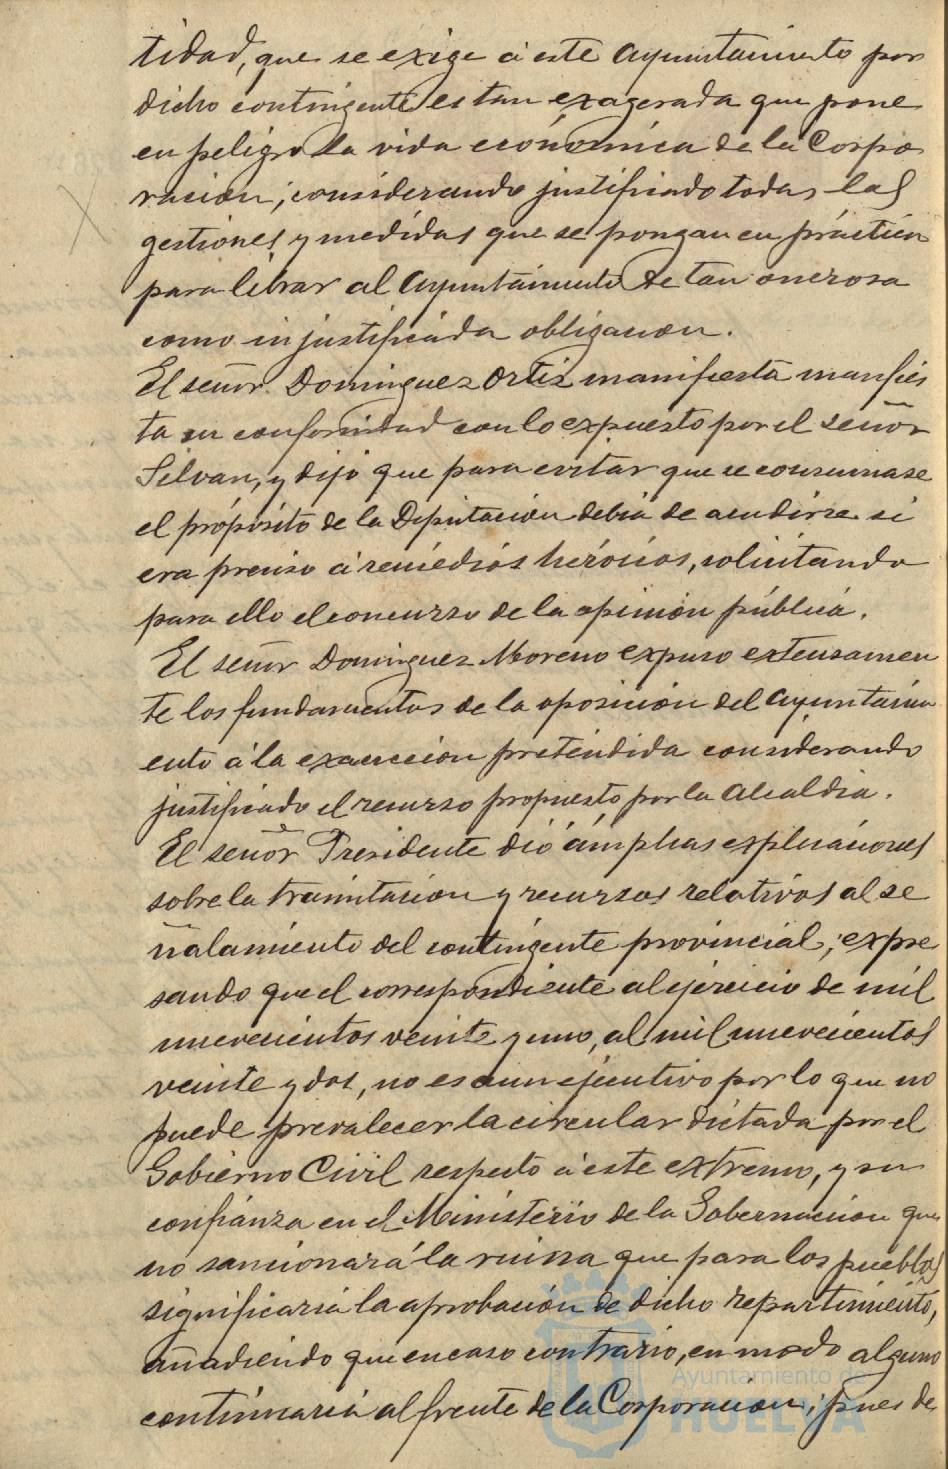 tidad, que se exige á este Ayuntamiento por
dicho contingente es tan exagerada que pone
en peligro la vida económica de la Corpo
ración; considerando justificado todas las
gestiones y medidas que se pongan en práctica
para librar al Ayuntamiento de tan onerosa
como injustificada obligación.
El señor Dominguez Ortiz manifiesta manfies
ta su conformidad con lo expuesto por el señor
Silvan, y dijo que para evitar que se consumase
el propósito de la Diputación debia de acudirse si
era preciso á remedios heróicos, solicitando
para ello el concurso de la opinión pública.
El señor Dominguez Moreno expuso extensamen
te los fundamentos de la oposición del Ayuntami
ento á la exacción pretendida considerando
justificado el recurso propuesto por la Alcaldia.
El señor Presidente dió ámplias explicaciones
sobre la tramitación y recursos relativos al se
ñalamiento del contingente provincial, expre
sando que el correspondiente al ejercicio de mil
novecientos veinte y uno, al mil novecientos
veinte y dos, no es aun ejecutivo por lo que no
puede prevalecer la circular dictada por el
Gobierno Civil respecto á este extremo, y su
confianza en el Ministerio de la Gobernación que
no sancionará la ruina que para los pueblos
significaria la aprobación de dicho repartimiento,
añadiendo que en caso contrario, en modo alguno
continuaria al frente de la Corporación; pues de
Ayuntamiento de
HUELVA